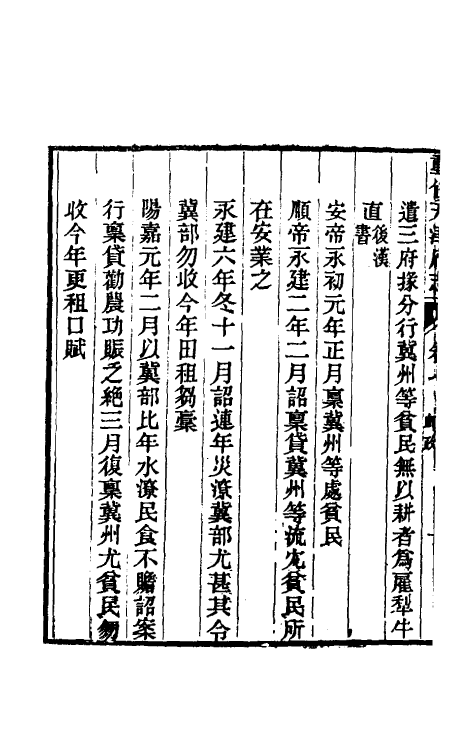 遣三府掾分行冀州等貧民無以耕者爲雇犂牛
直後漢
書
安帝永初元年正月稟冀州等處貧民
順帝永建二年二月詔稟貸冀州等流冗貧民所
在安業之
永建六年冬十一月詔連年災潦冀部尤甚其令
冀部勿收今年田租芻稾
陽嘉元年二月以冀部比年水潦民食不贍詔案
行稟貸勸農功賑乏絶三月復稟冀州尤貧民勿
收今年更租口賦